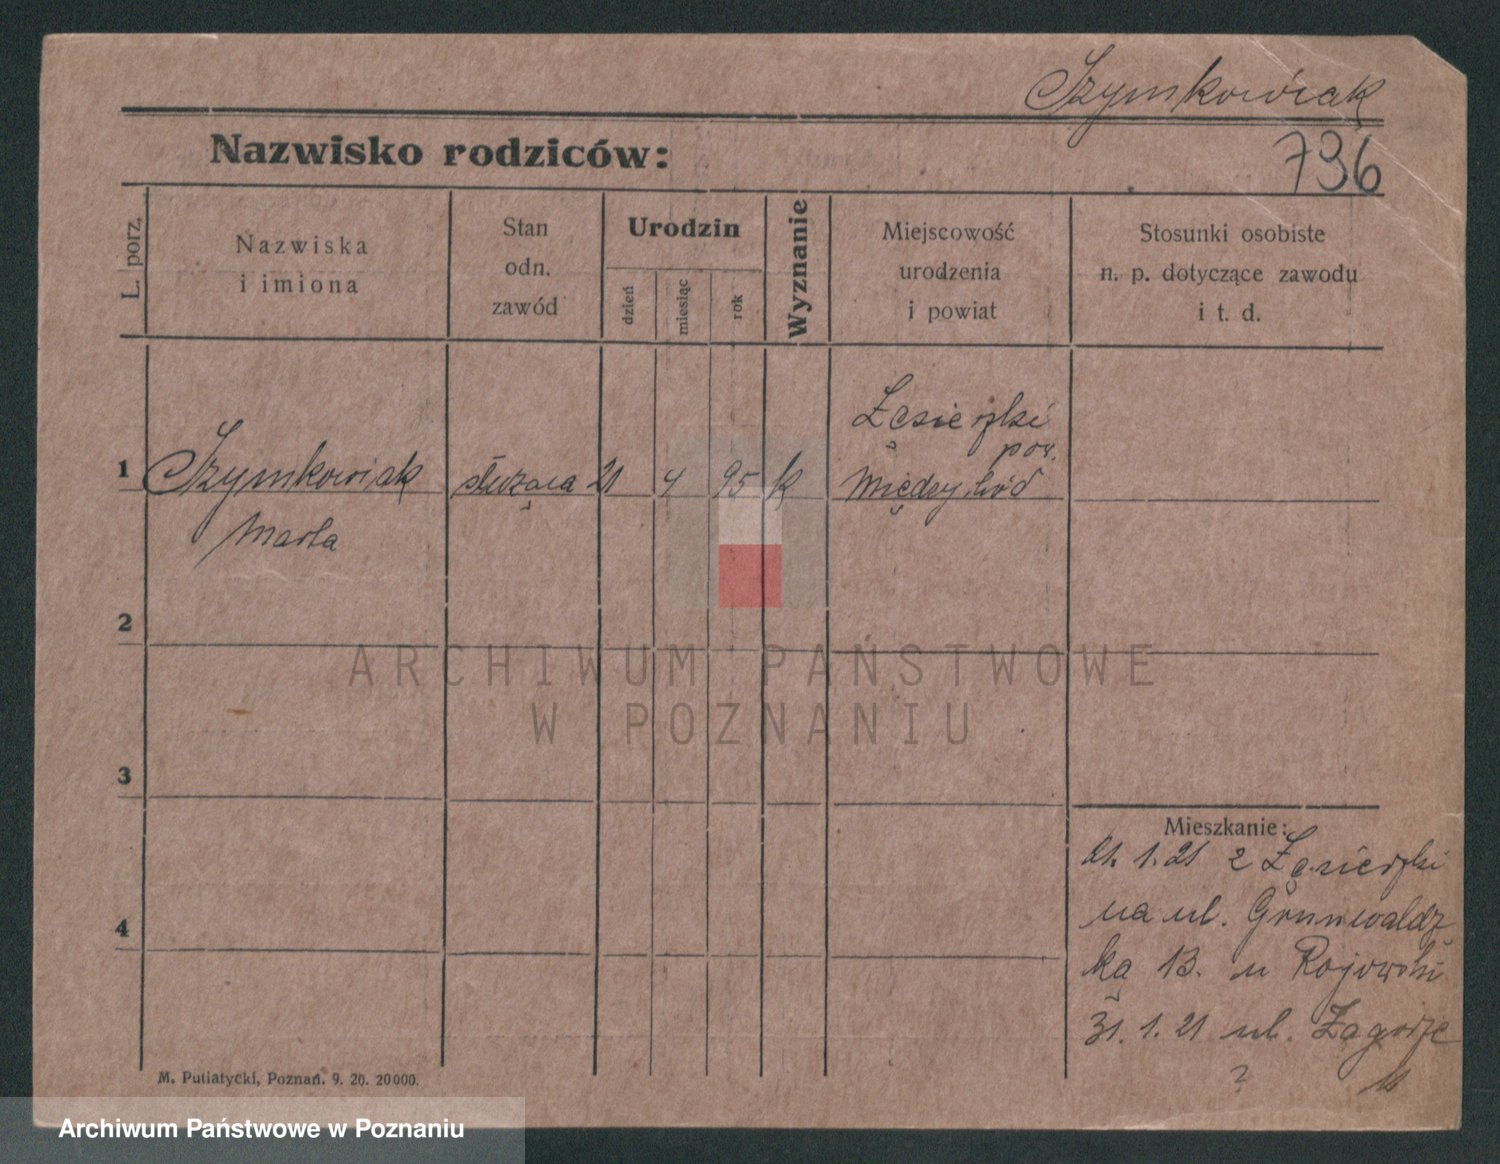 Szymkowiak
736
Nazwisko rodziców:
L. porz.
Nazwiska
i imiona
Stan
odn.
zawód
Urodzin
dzień
miesiąc
rok
Wyznanie
Miejscowość
urodzenia
i powiat
Stosunki osobiste
n. p. dotyczące zawodu
i t. d.
1
Szymkowiak
Marta
służąca
21
4
95
k
pow.
Międzychód
2
3
4
Mieszkanie:
21. 1. 21 z
na ul. Grunwaldz
ką 13. u Rajewski
31. 1. 21 ul. Zagorze
?
11
M. Putiatycki, Poznań. 9. 20. 20000.
ARCHIWUM PAŃSTWOWE
W POZNANIU
Archiwum Państwowe w Poznaniu